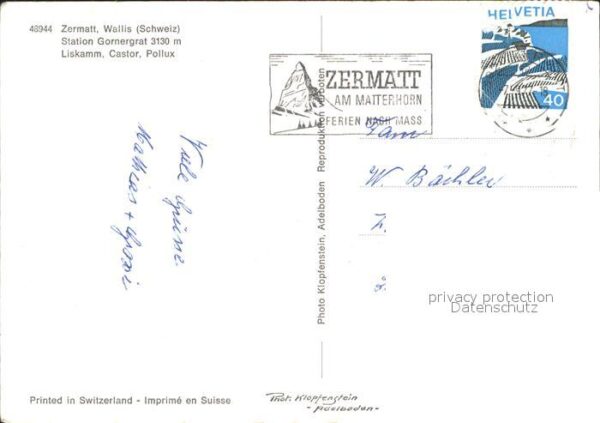 48944 Zermatt, Wallis (Schweiz)
Station Gornergrat 3130 m
Liskamm, Castor, Pollux
HELVETIA
40
ZERMATT
AM MATTERHORN
FERIEN NACH MASS
Fam
W. Bächler
Z.
Viele Grüsse
Mathias +
Photo Klopfenstein, Adelboden Reproduktion verboten
privacy protection
Datenschutz
Printed in Switzerland - Imprimé en Suisse
Phot. Klopfenstein
- Adelboden -